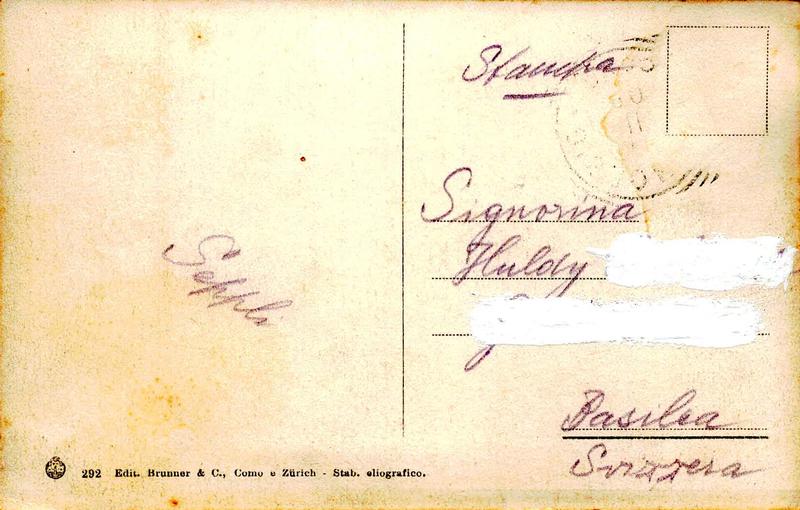 Stampa
Signorina
Huldy
Seppli
Basilea
Svizzera
292 Edit. Brunner & C., Como e Zürich - Stab. eliografico.